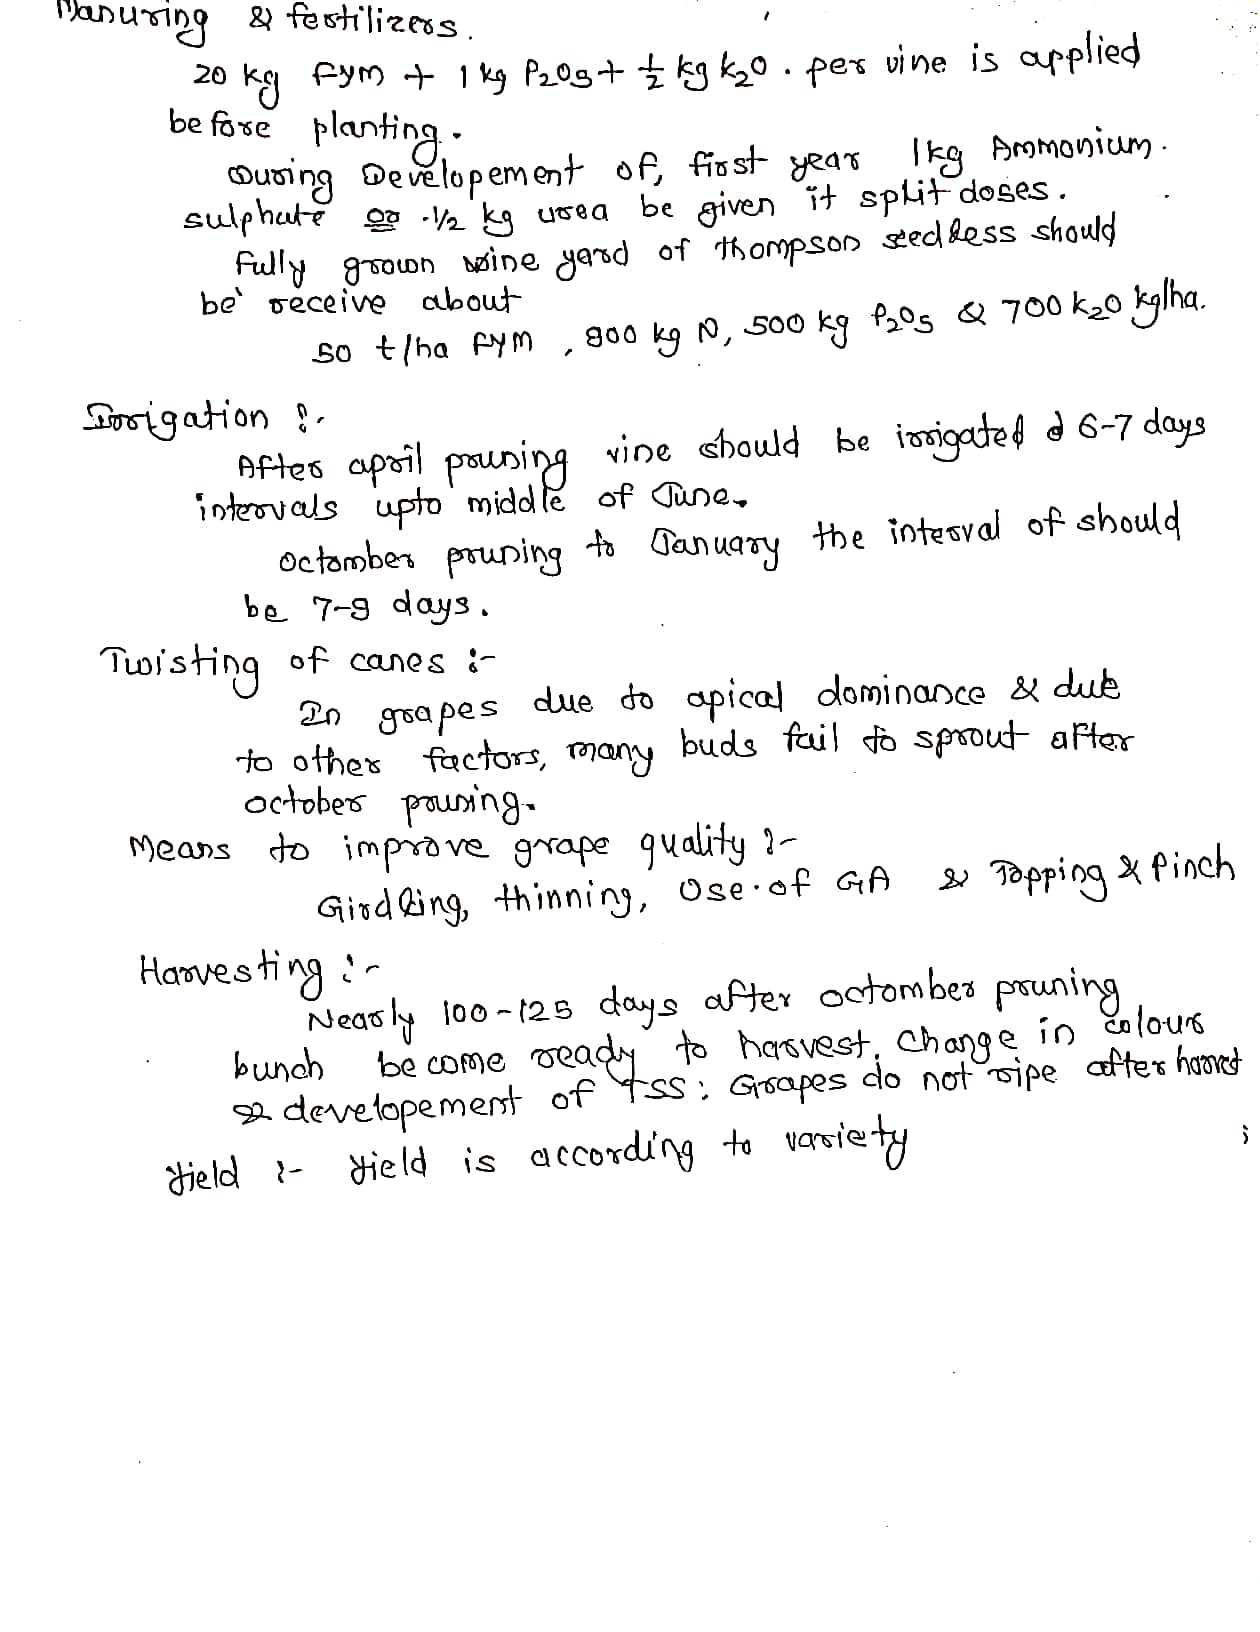 Manuring & fertilizers.
20 kg fym + 1 kg P2O5 + 1/2 kg k2O. per vine is applied
before planting.
During Developement of, first year 1kg Ammonium.
sulphate or 1/2 kg urea be given it split doses.
Fully grown wine yard of thompson seedless should
be receive about
50 t/ha fym, 900 kg N, 500 kg P2O5 & 700 k2O kg/ha.
Irrigation :-
After april pruning vine should be irrigated @ 6-7 days
intervals upto middle of June.
Octomber pruning to January the interval of should
be 7-9 days.
Twisting of canes :-
In grapes due to apical dominance & due
to other factors, many buds fail to sprout after
october pruning.
Means to improve grape quality :-
Girdling, thinning, Use of GA & Topping & Pinch
Harvesting :-
Nearly 100-125 days after octomber pruning
bunch become ready to harvest. Change in colour
& developement of TSS; Grapes do not ripe after harvest
Yield :- Yield is according to variety